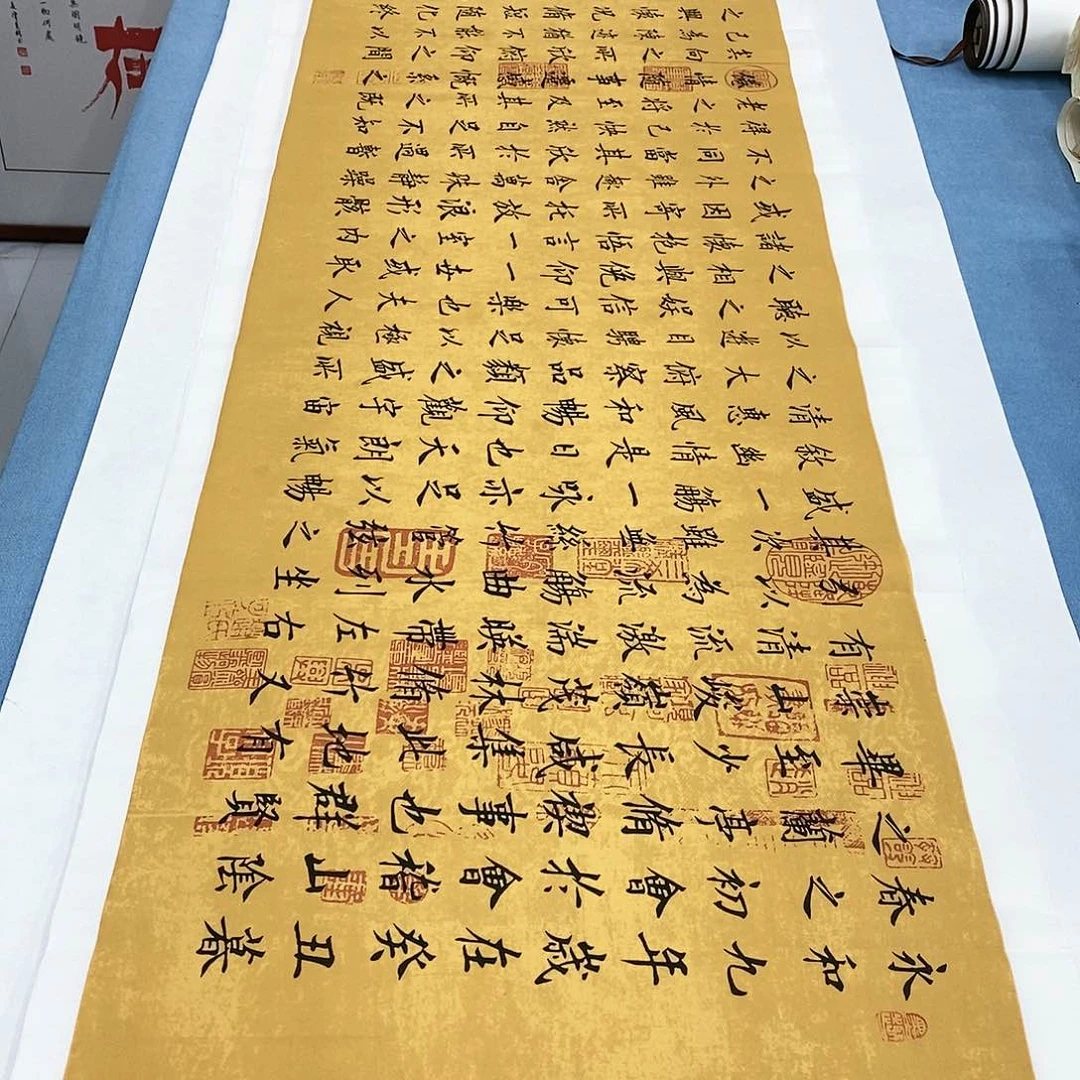 永和九年歲在癸丑暮
春之初會於會稽山陰
之蘭亭脩禊事也群賢
畢至少長咸集此地有
崇山峻領茂林脩竹又
有清流激湍暎帶左右
引以為流觴曲水列坐
其次雖無絲竹管絃之
盛一觴一詠亦足以暢
敘幽情是日也天朗氣
清惠風和暢仰觀宇宙
之大俯察品類之盛所
以遊目騁懷足以極視
聽之娛信可樂也夫人
之相與俛仰一世或取
諸懷抱悟言一室之內
或因寄所託放浪形骸
之外雖趣舍萬殊靜躁
不同當其欣於所遇暫
得於己快然自足不知
老之將至及其所之既
倦情隨事遷感慨係之
矣向之所欣俛仰之間
已為陳迹猶不能不以
之興懷況脩短隨化終